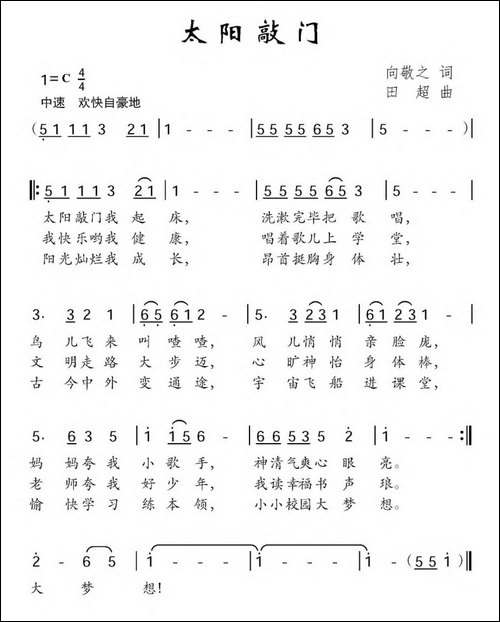 太阳敲门
1=C 4/4
向敬之 词
中速 欢快自豪地
田 超 曲
(5 1 1 1 3 2 1 | 1 - - - | 5 5 5 5 6 5 3 | 5 - - -)|
‖: 5 1 1 1 3 2 1 | 1 - - - | 5 5 5 5 6 5 3 | 5 - - - |
太阳敲门我 起 床, 洗漱完毕把 歌 唱,
我快乐哟我 健 康, 唱着歌儿上 学 堂,
阳光灿烂我 成 长, 昂首挺胸身 体 壮,
3· 3 2 1 | 6 5 6 1 2 - | 5· 3 2 1 | 6 1 2 3 1 - |
鸟 儿飞来 叫 喳喳, 风 儿悄悄 亲脸庞,
文 明走路 大 步迈, 心 旷神怡 身体棒,
古 今中外 变 通途, 宇 宙飞船 进课堂,
5· 6 3 5 | i i 5 6 - | 6 6 5 3 5 2 | i - - :‖
妈 妈夸我 小歌手, 神清气爽心 眼 亮。
老 师夸我 好少年, 我读幸福书 声 琅。
愉 快学习 练本领, 小小校园大 梦 想。
2 - 6 5 | i - - - | i - - - | i - (5 5 1)‖
大 梦 想!